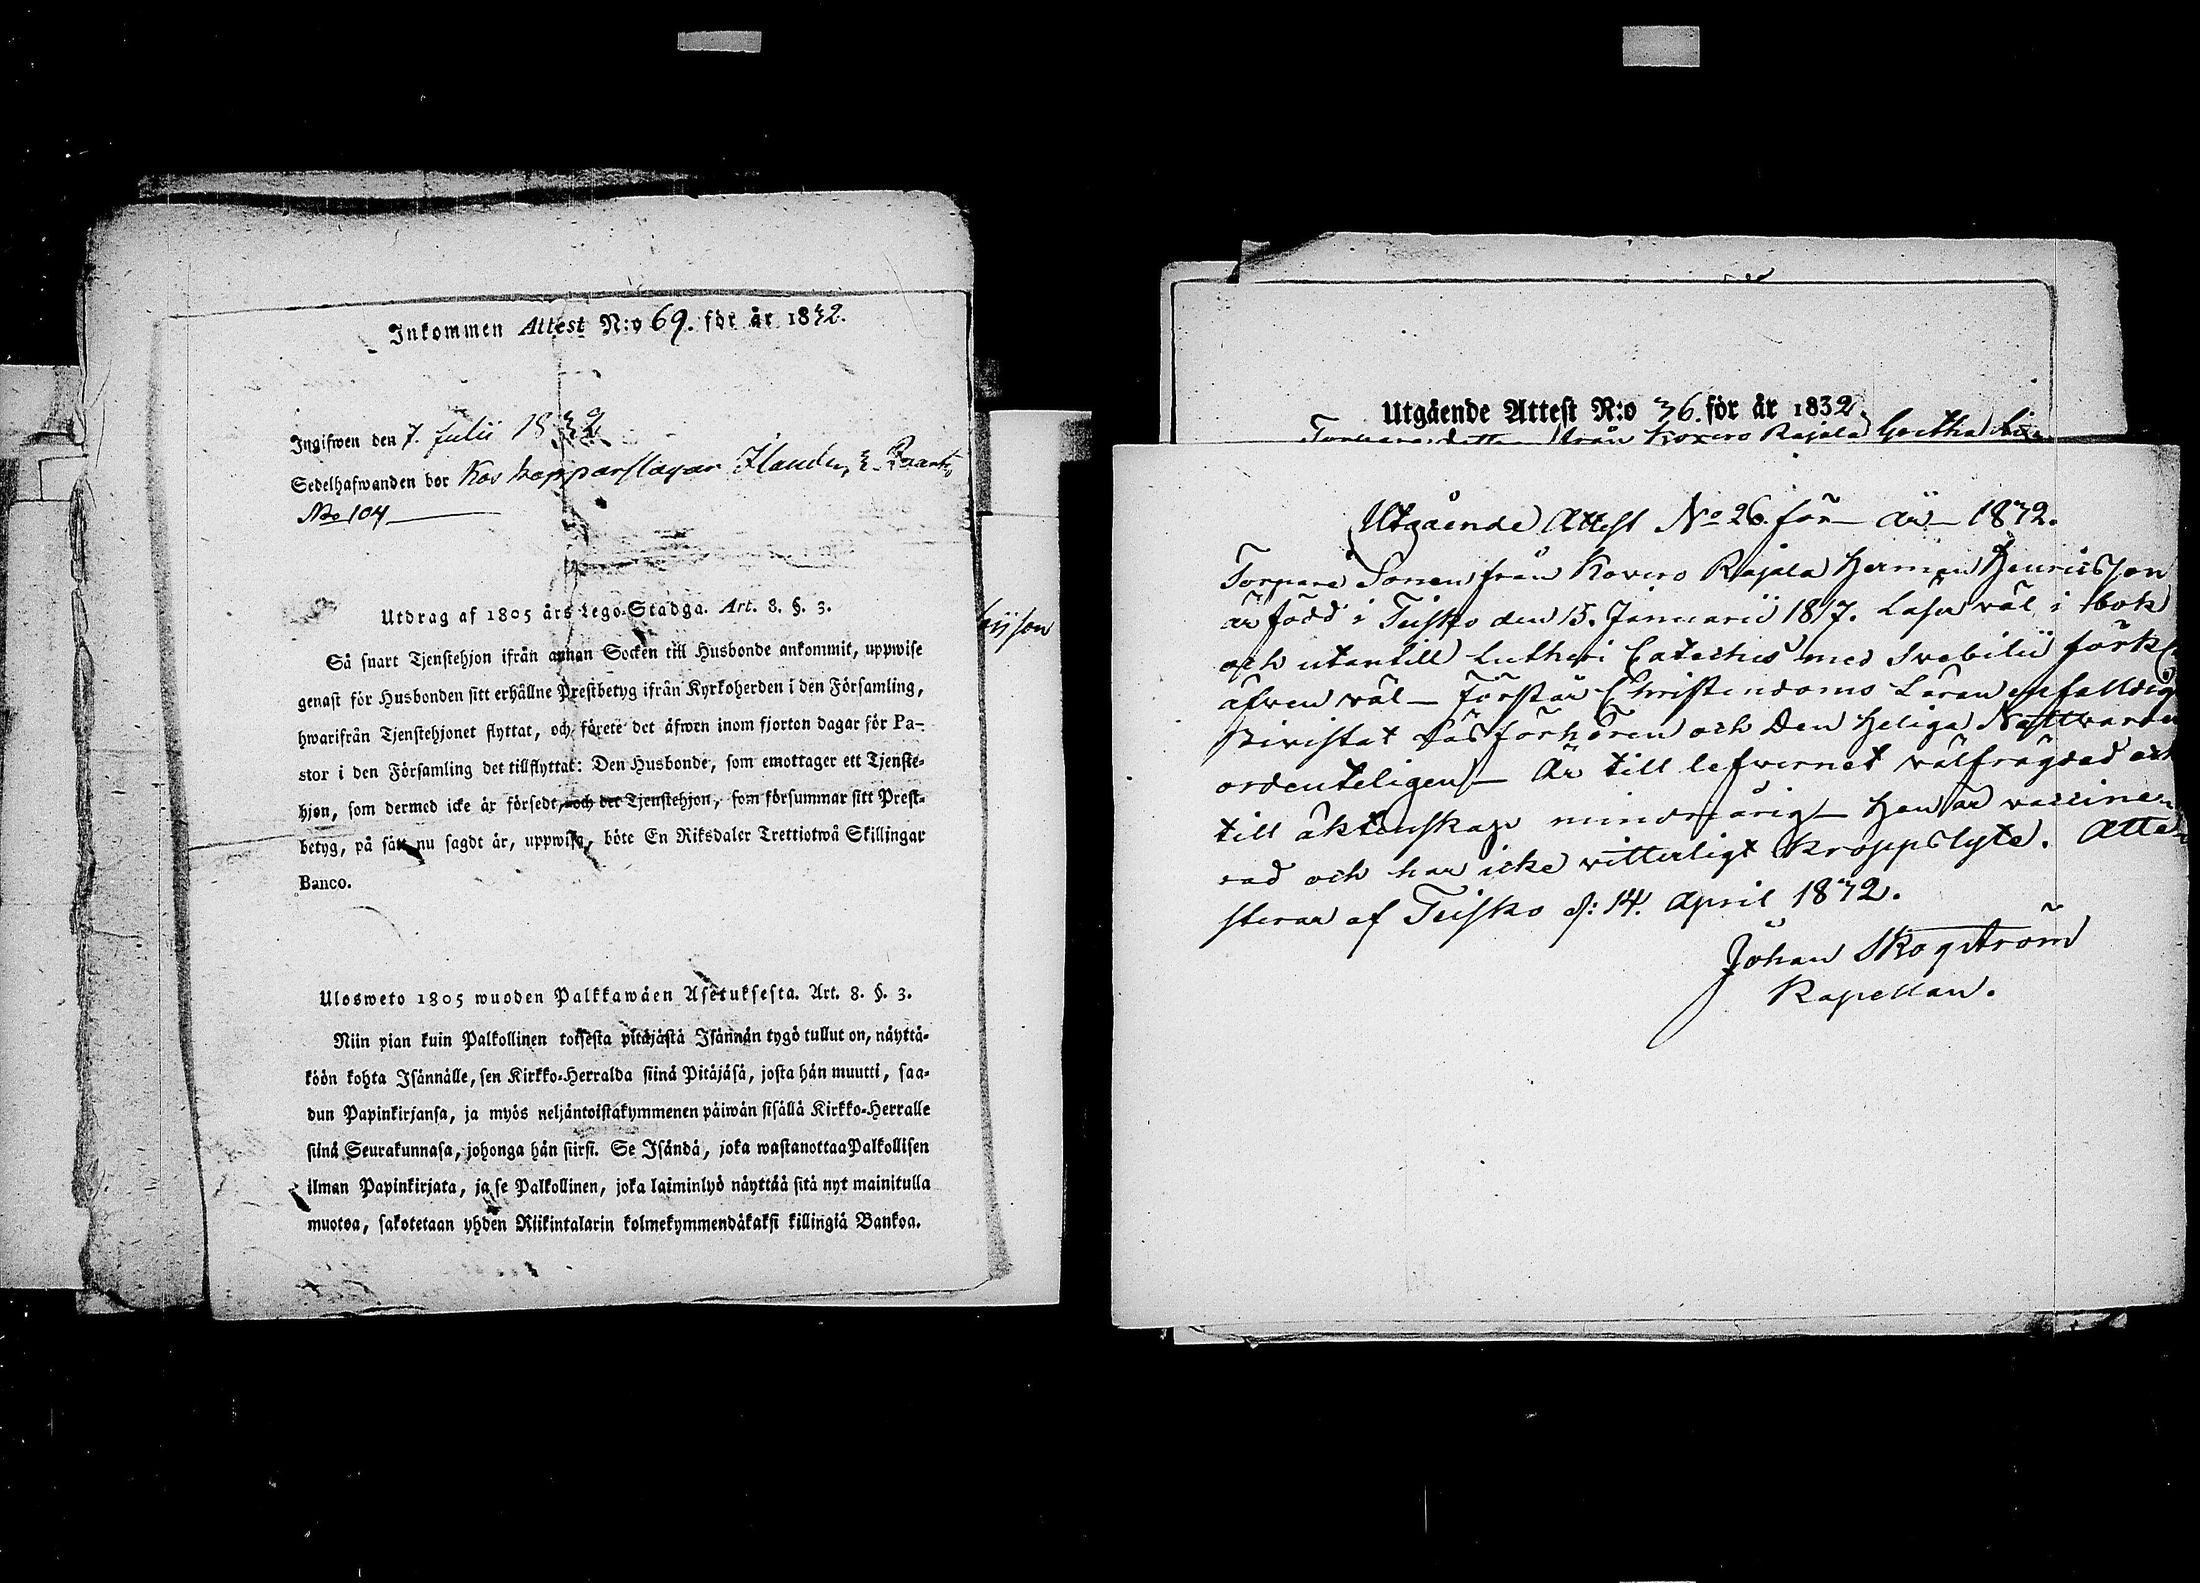 Inkommen Attest N:o 69. för år 1832.
Ingifwen den 7. Julii 1832
Sedelhafwanden bor hos kopparslagar
No 104
Utdrag af 1805 års Lego-Stadga. Art. 8. §. 3.
Så snart Tjenstehjon ifrån annan Socken till Husbonde ankommit, uppwise
genast för Husbonden sitt erhållne Prestbetyg ifrån Kyrkoherden i den Församling,
hwarifrån Tjenstehjonet flyttat, och förete det äfwen inom fjorton dagar för Pa-
stor i den Församling det tillflyttat: Den Husbonde, som emottager ett Tjenste-
hjon, som dermed icke är försedt, och det Tjenstehjon, som försummar sitt Prest-
betyg, på sätt nu sagdt är, uppwisa, böte En Riksdaler Trettiotwå Skillingar
Banco.
Ulosweto 1805 wuoden Palkkawäen Asetuksesta. Art. 8. §. 3.
Niin pian kuin Palkollinen toisesta pitäjästä Isännän tygö tullut on, näyttä-
köön kohta Isännälle, sen Kirkko-Herralda siinä Pitäjäsä, josta hän muutti, saa-
dun Papinkirjansa, ja myös neljäntoistakymmenen päiwän sisällä Kirkko-Herralle
siinä Seurakunnasa, johonga hän siirsi. Se Isändä, joka wastanottaa Palkollisen
ilman Papinkirjata, ja se Palkollinen, joka laiminlyö näyttää sitä nyt mainitulla
muotoa, sakotetaan yhden Riikintalarin kolmekymmendäkaksi killingiä Bankoa.
son
Utgående Attest N:o 36. för år 1832.
från Kovero Rajala Greetha
Utgående Attest No 26. för år 1832.
Torpare Sonen från Kovero Rajala Herman Henricsson
är född i Teisko den 15. Januarii 1817. Läser väl i bok
och utantill Lutheri Catechis med Svebilii förkl
äfwen väl – förstår Christendoms Läran enfalldig
Bivistat Läsförhören och Den Heliga Nattwarden
ordenteligen – Är till lefvernet välfrägdad och
till äktenskap minderårig – Han är vaccine-
rad och har icke vitterligt kroppslyte. Atte-
sterar af Teisko d: 14. April 1832.
Johan Skogström
Kapellan.